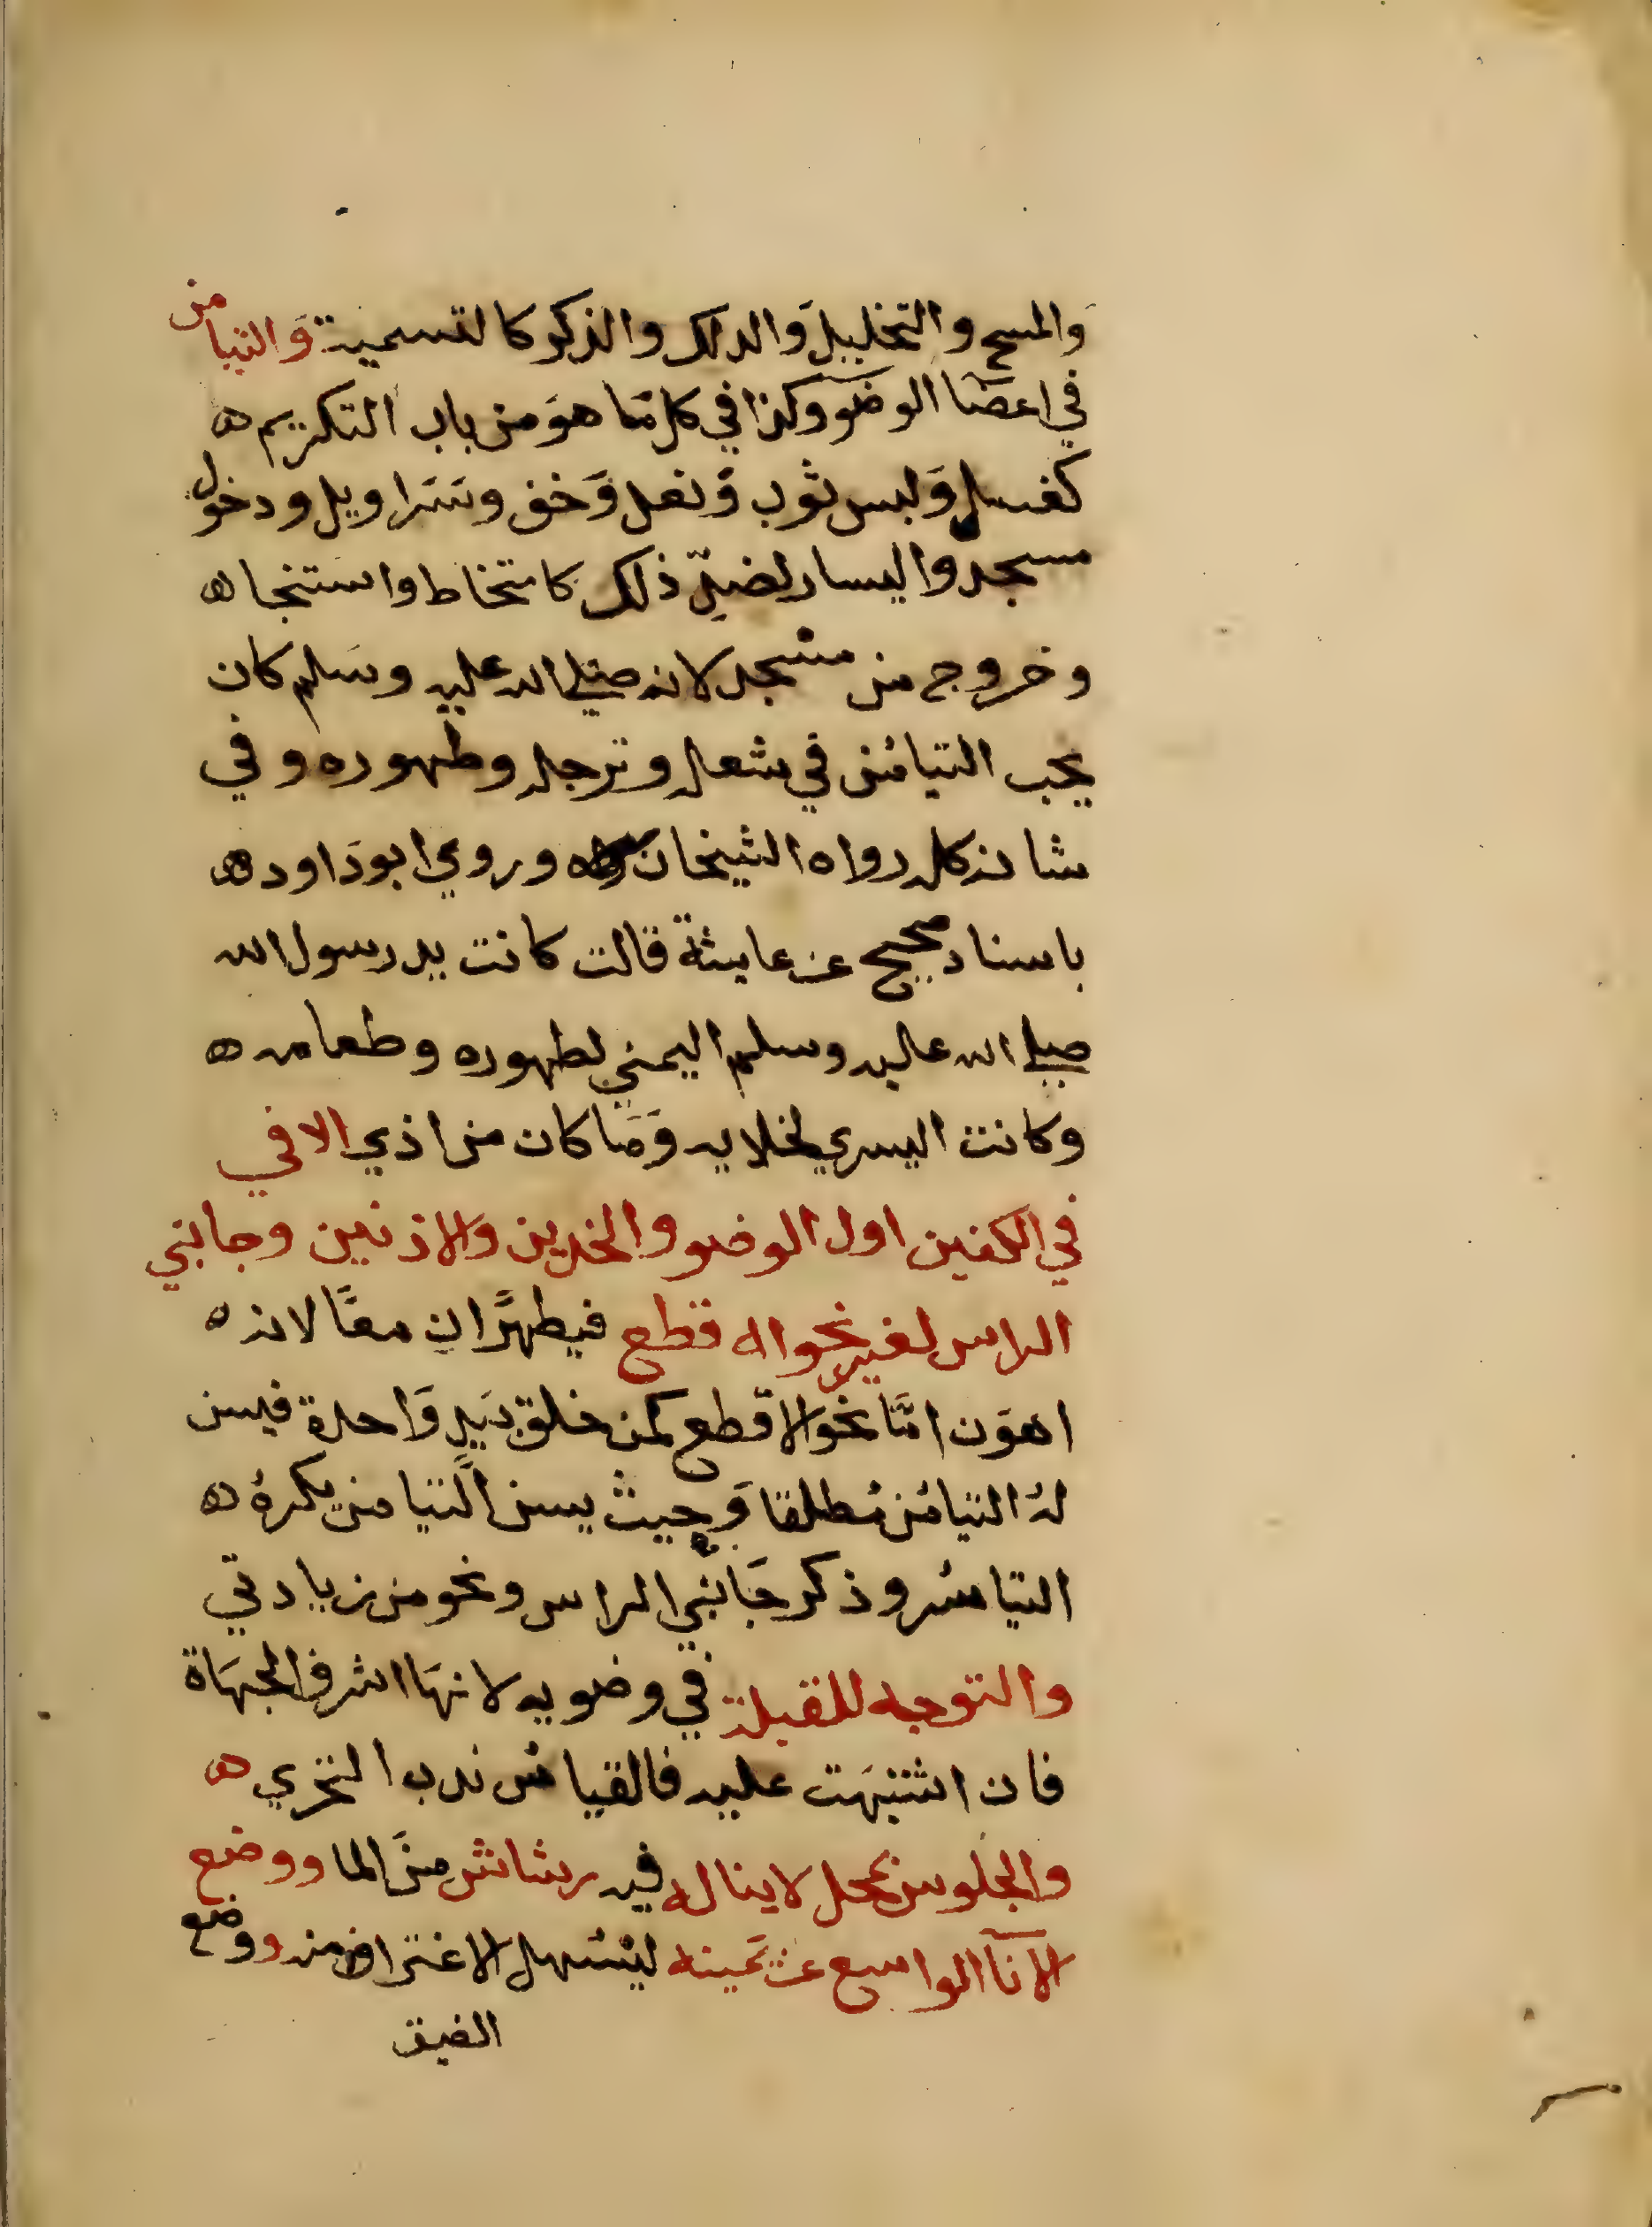 والمسح والتخليل والدلك والذكر كالتسمية والتيامن
في اعضا الوضو وكذا في كل ما هو من باب التكريم ه
كغسل ولبس ثوب ونعل وخف وسراويل ودخول
مسجد واليسار لضد ذلك كامتخاط واستنجا ه
وخروج من مسجد لانه صلي الله عليه وسلم كان
يحب التيامن في تنعله وترجله وطهوره وفي
شانه كله رواه الشيخان وروي ابو داود ه
باسناد صحيح عن عايشة قالت كانت يد رسول الله
صلي الله عليه وسلم اليمني لطهوره وطعامه ه
وكانت اليسري لخلايه وما كان من اذي الا في
في الكفين اول الوضو والخدين والاذنين وجانبي
الراس لغير نحو اقطع فيطهران معا لانه ه
اهون اما نحو الاقطع كمن خلق بيد واحدة فيسن
له التيامن مطلقا وحيث يسن التيامن يكره ه
التياسر وذكر جانبي الراس ونحو من زيادتي
والتوجه للقبلة في وضويه لانها اشرف الجهاة
فان اشتبهت عليه فالقياس ندب التحري ه
والجلوس بمحل لا يناله فيه رشاش من الما ووضع
الانآ الواسع عن يمينه ليسهل الاغتراف منه ووضع
الضيق